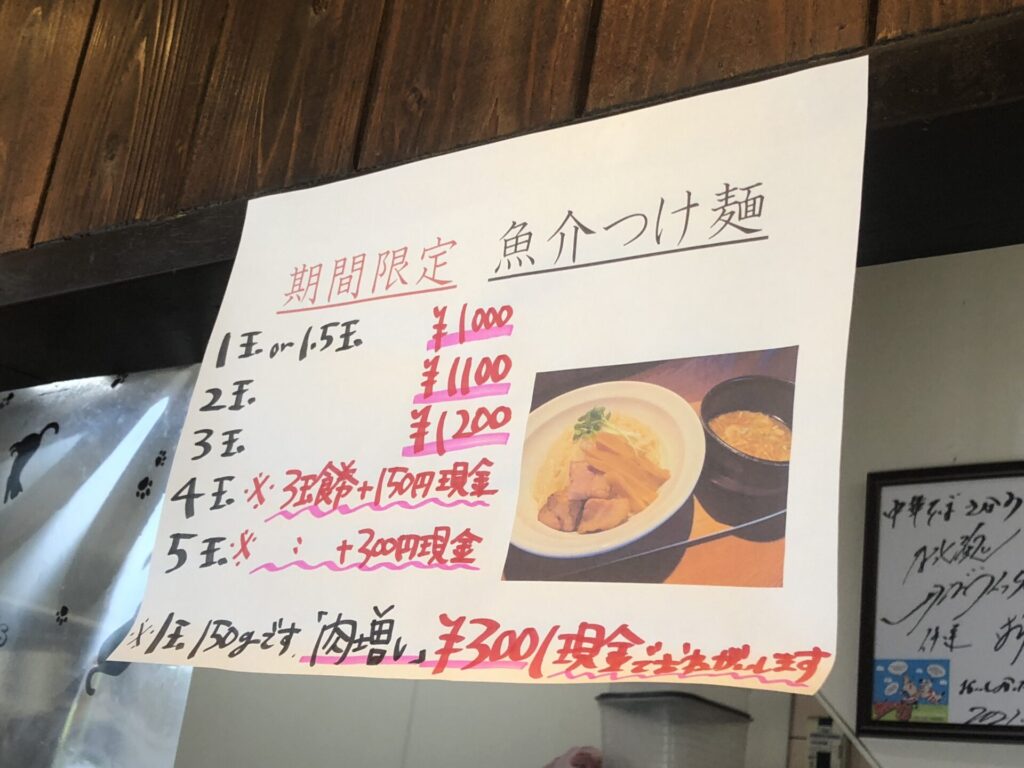 期間限定 魚介つけ麺
1玉 or 1.5玉 ¥1000
2玉 ¥1100
3玉 ¥1200
4玉 ※3玉食券+150円現金
5玉※ 〃 +300円現金
※1玉150gです。「肉増し」¥300(現金でおねがいします
中華そば